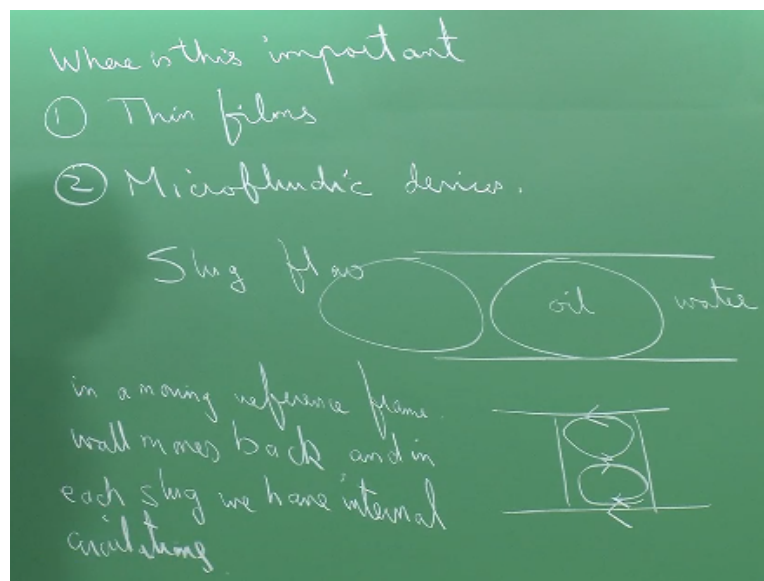 Where is this important
① Thin films
② Microfluidic devices.
Slug flow
oil
water
in a moving reference frame.
wall moves back and in
each slug we have internal
circulations